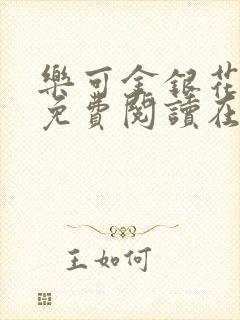 樂可金銀花
免費閱讀在
王如何